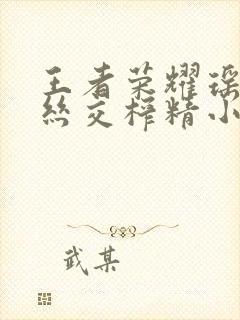 王者荣耀瑶
丝交榨精小
武某